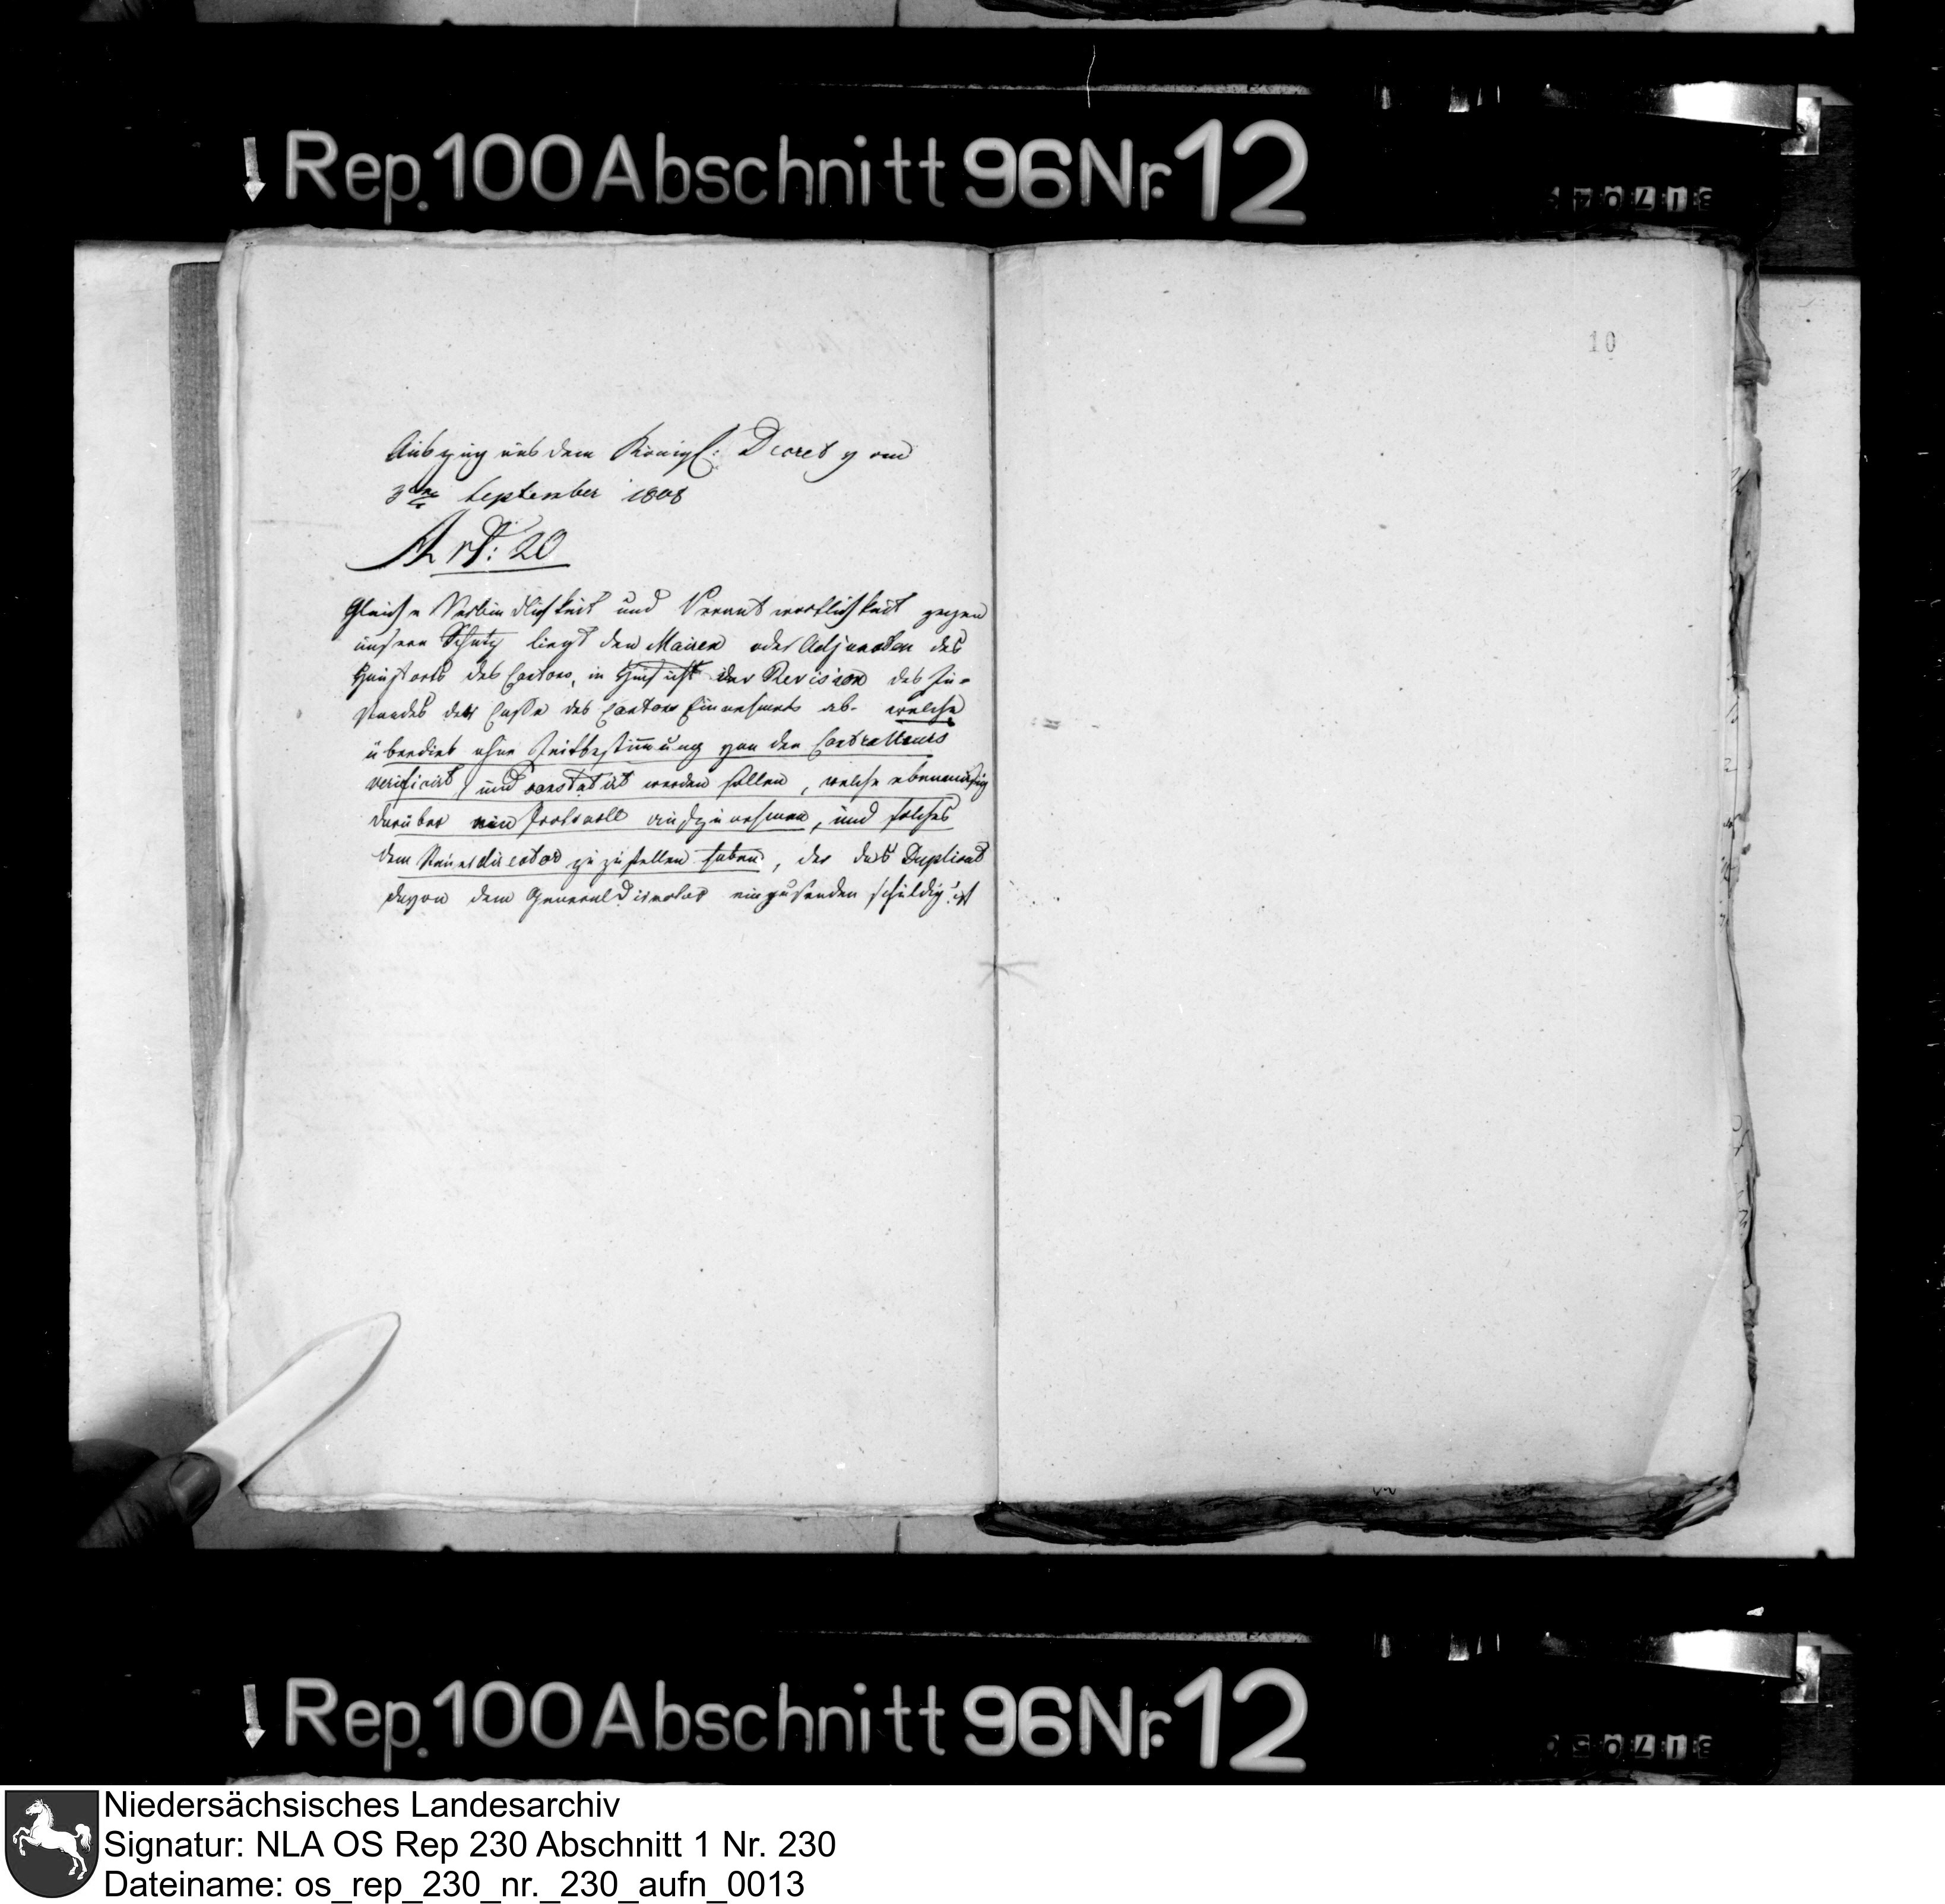 Rep. 100 Abschnitt 96 Nr. 12
10
Auszug aus dem Königl: Decret vom
3ten September 1808
Art: 20
Gleiche Verbindlichkeit und Verantwortlichkeit gegen
unsern Schatz liegt den Mairen oder Adjuncten des
Hauptorts des Cantons, in Hinsicht der Revision des Zu-
standes der Casse des Cantons Einnehmers ob. welche
überdies ohne Zeitbestimmung von den Controlleurs
verificirt und constatirt werden sollen, welche ebenmäßig
darüber ein Protocoll aufzunehmen, und solches
dem Steuerdirector zuzustellen haben, der das Duplicat
davon dem General Director einzusenden schuldig ist
Rep. 100 Abschnitt 96 Nr. 12
Niedersächsisches Landesarchiv
Signatur: NLA OS Rep 230 Abschnitt 1 Nr. 230
Dateiname: os_rep_230_nr._230_aufn_0013